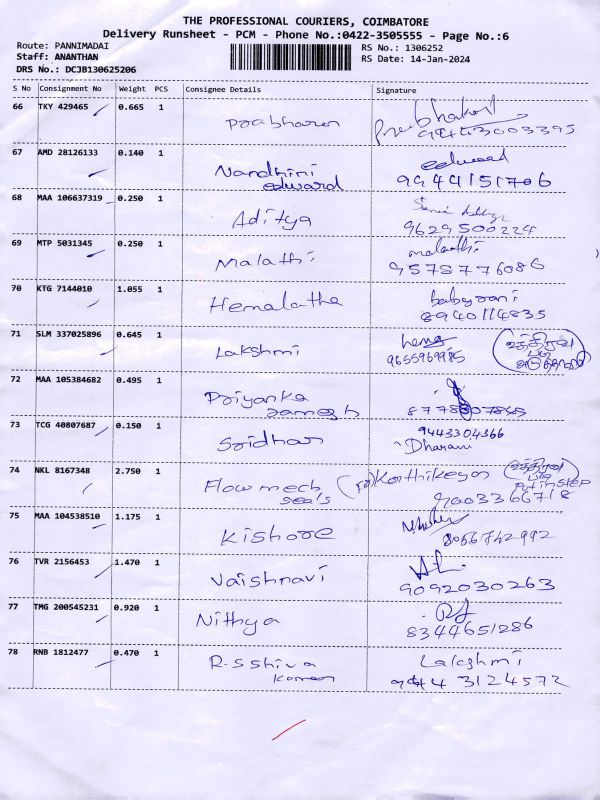 THE PROFESSIONAL COURIERS, COIMBATORE
Delivery Runsheet - PCM - Phone No.:0422-3505555 - Page No.:6
Route: PANNIMADAI
RS No.: 1306252
Staff: ANANTHAN
RS Date: 14-Jan-2024
DRS No.: DCJB130625206
S No Consignment No Weight PCS Consignee Details Signature
66 TKY 429465 0.665 1 Prabhakar
67 AMD 28126133 0.140 1 Nandhini edward
edward 9944151706
68 MAA 106637319 0.250 1 Aditya
9629500224
69 MTP 5031345 0.250 1 Malathi malathi
9578776086
70 KTG 7144010 1.055 1 Hemalatha babyrani
8940114835
71 SLM 337025896 0.645 1 Lakshmi
9655969985
72 MAA 105384682 0.495 1 Priyanka
ramesh
73 TCG 40807687 0.150 1 Sridhar 9443304366
Dharani
74 NKL 8167348 2.750 1 Flowmech Karthikeyan
seals Put in Step
9003366718
75 MAA 104538510 1.175 1 Kishore
8056742992
76 TVR 2156453 1.470 1 Vaishnavi
9092030263
77 TMG 200545231 0.920 1 Nithya
8344651286
78 RNB 1812477 0.470 1 R.S Shiva Lakshmi
9444 3124572